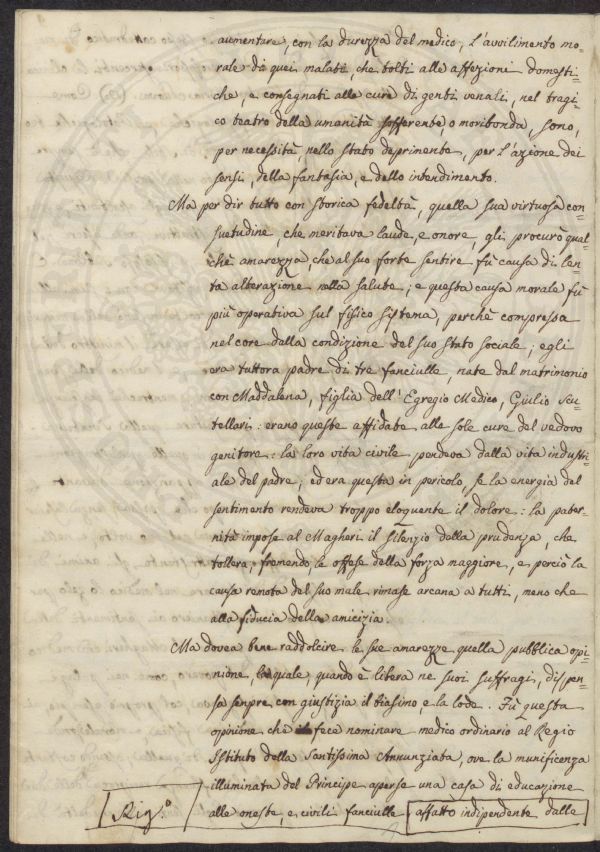 aumentare, con la durezza del medico, l'avvilimento mo=
rale di quei malati, che tolti alle affezioni domesti=
che, e consegnati alle cure di genti venali, nel tragi=
co teatro della umanità sofferente, o moribonda, sono,
per necessità, nello stato deprimente, per l'azione dei
sensi, della fantasia, e dello intendimento.
Ma per dir tutto con storica fedeltà, quella sua virtuosa con=
suetudine, che meritava laude, e onore, gli procurò qual=
chè amarezza, che al suo forte sentire fù causa di len=
ta alterazione nella salute; e questa causa morale fù
più operativa sul fisico sistema, perchè compressa
nel core dalla condizione del suo stato sociale; egli
era tuttora padre di tre fanciulle, nate dal matrimonio
con Maddalena, figlia dell'Egregio Medico, Giulio Scu=
tellari: erano queste affidate alle sole cure del vedovo
genitore: la loro vita civile pendeva dalla vita industri=
ale del padre; ed era questa in pericolo, se la energia del
sentimento rendeva troppo eloquente il dolore: la pater=
nità impose al Magheri il silenzio della prudenza, che
tollera, fremendo, le offese della forza maggiore, e perciò la
causa remota del suo male rimase arcana a tutti, meno che
alla fiducia della amicizia.
Ma dovea bene raddolcire le sue amarezze quella pubblica opi=
nione, la quale, quando è libera ne suoi suffragi, dispen=
sa sempre con giustizia il biasimo e la lode. Fù questa
opinione che fece nominare medico ordinario al Regio
Istituto della Santissima Annunziata, ove la munificenza
illuminata del Principe aperse una casa di educazione
alle oneste, e civili fanciulle affatto indipendente dalle
Rig.º